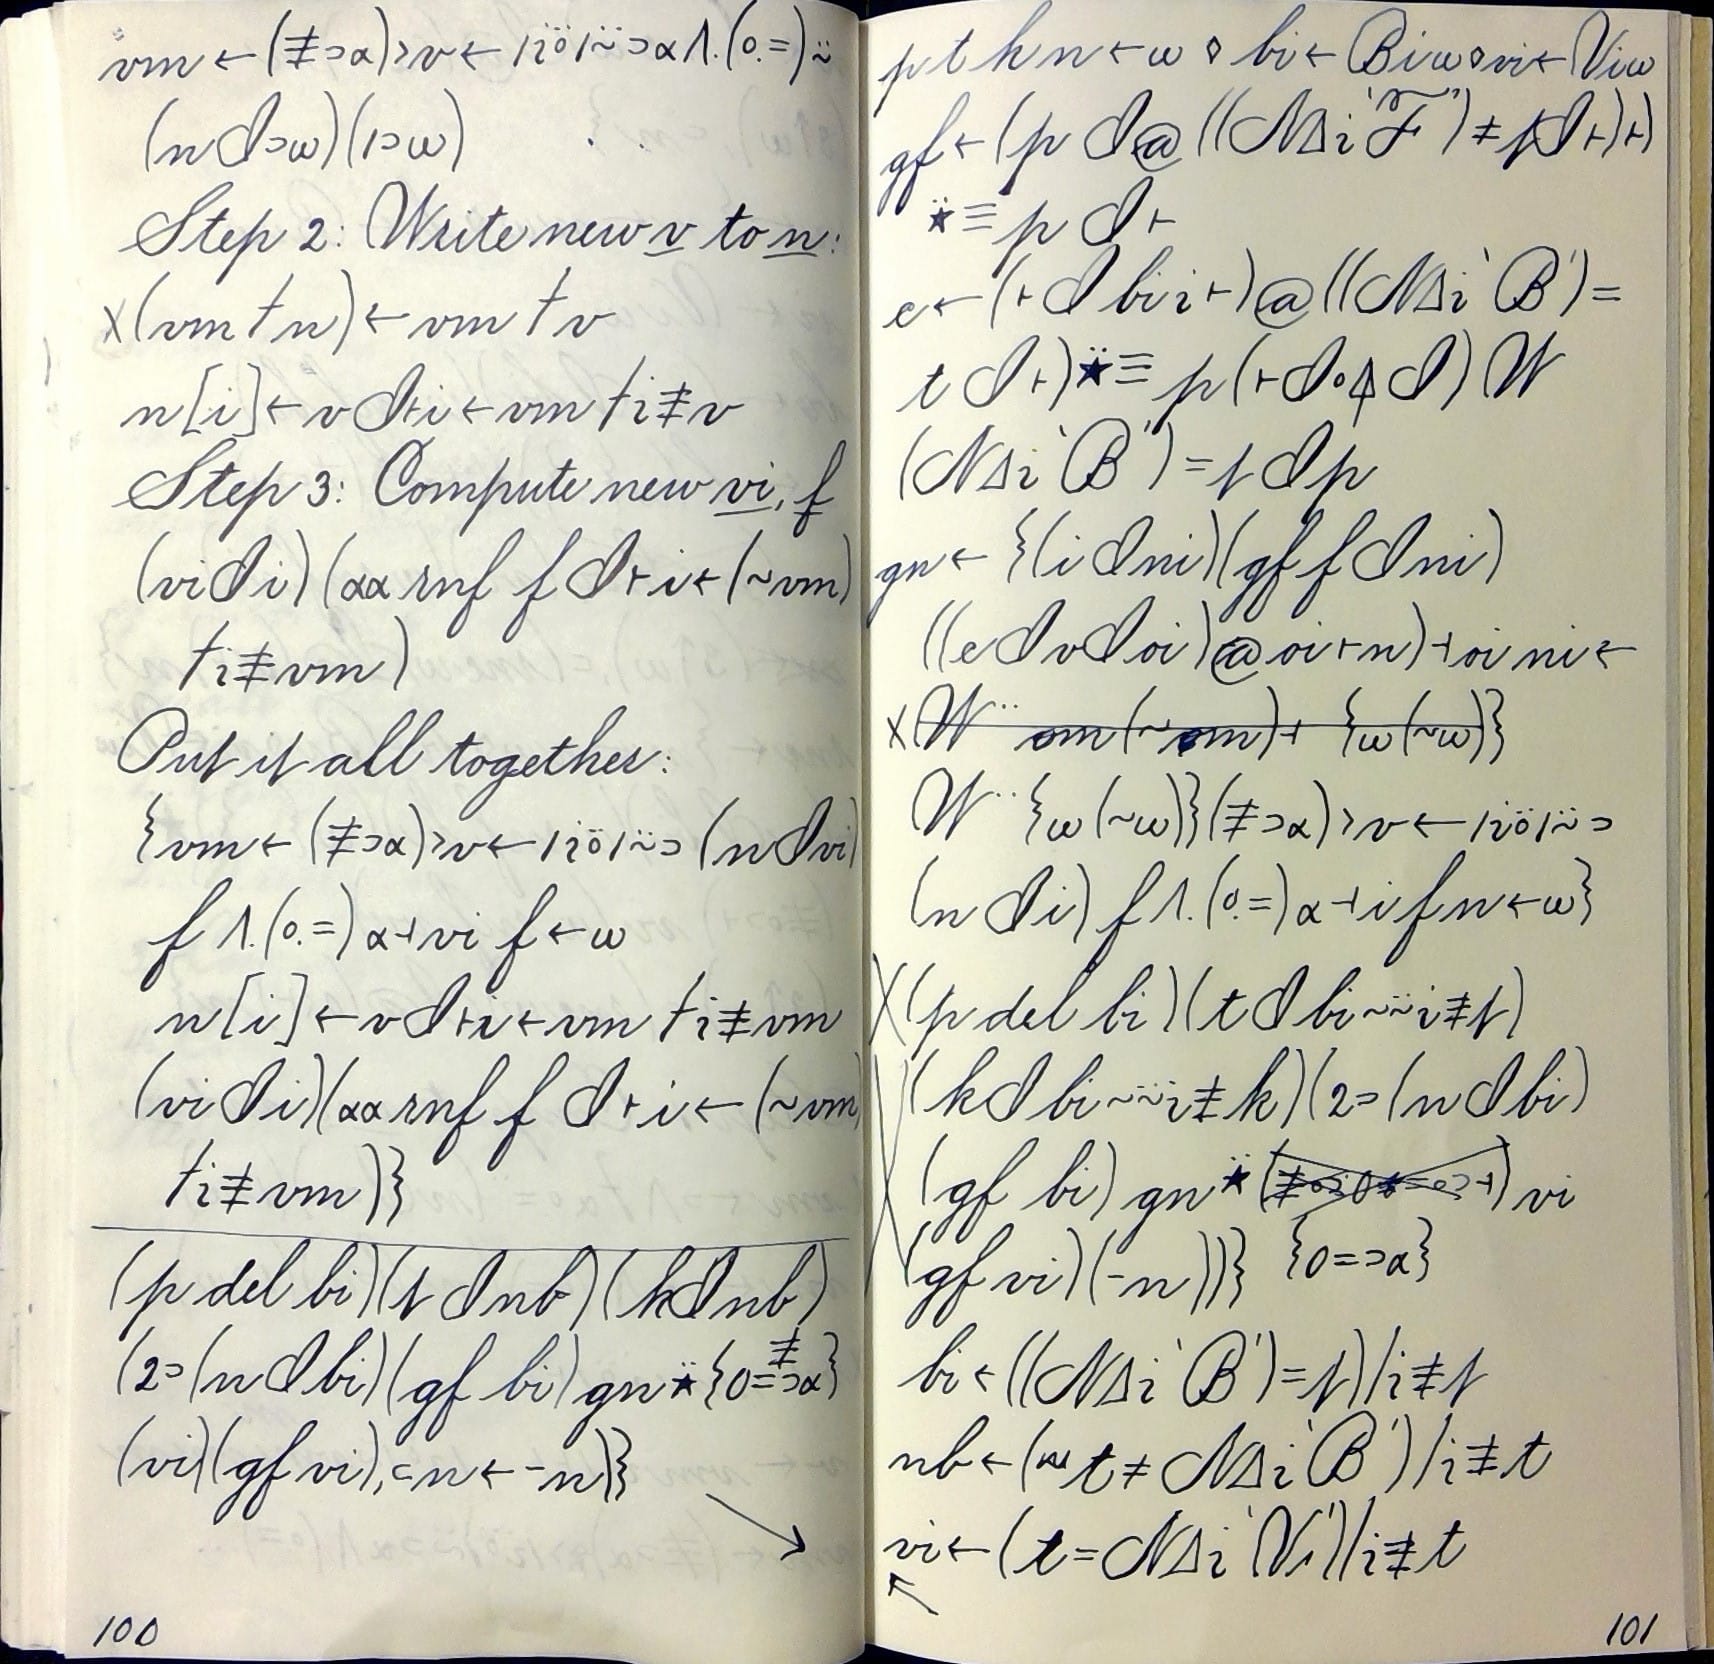 vm←(≢⊃⍺)>v←⍳⍨⍤⍳⍨⊃⍺∧.(∘.=)⍨
(n⌷⊃⍵)(1⊃⍵)
Step 2: Write new v to n:
X(vm⌿n)←vm⌿v
n[i]←v⌷⊢i←vm⌿⍳≢v
Step 3: Compute new vi, f
(vi⌷i)(⍺⍺ rnf f⌷⊢i←(~vm)
⌿⍳≢vm)
Put it all together:
{vm←(≢⊃⍺)>v←⍳⍨⍤⍳⍨⊃(n⌷vi)
f∧.(∘.=)⍺⊣vi f←⍵
n[i]←v⌷⊢i←vm⌿⍳≢vm
(vi⌷i)(⍺⍺ rnf f⌷⊢i←(~vm)
⌿⍳≢vm)}
(p del bi)(t⌷nb)(k⌷nb)
(2⊃(n⌷bi)(gf bi)gn⍣{0=≢⊃⍺}
(vi)(gf vi),⊂n←-n)}
100
p t k n←⍵ ⋄ bi←Bi⍵⋄vi←Vi⍵
gf←(p⌷@((N∆⍳'F')≠t⌷⊢)⊢)
⍣≡p⌷⊢
e←(⊢⌷bi⍳⊢)@((N∆⍳'B')=
t⌷⊢)⍣≡p(⊢⌷∘⍋⌷)W
(N∆⍳'B')=t⌷p
gn←{(i⌷ni)(gf f⌷ni)
((e⌷v⌷oi)@oi⊢n)⊣oi ni←
X W¨ om(~om)⊣ {⍵(~⍵)}
W¨{⍵(~⍵)}(≢⊃⍺)>v←⍳⍨⍤⍳⍨⊃
(n⌷i)f∧.(∘.=)⍺⊣i f n←⍵}
X(p del bi)(t⌷bi~⍨⍳≢t)
(k⌷bi~⍨⍳≢k)(2⊃(n⌷bi)
(gf bi)gn⍣ vi
(gf vi)(-n))} {0=⊃⍺}
bi←((N∆⍳'B')=t)/⍳≢t
nb←(t≠N∆⍳'B')/⍳≢t
vi←(t=N∆⍳'V')/⍳≢t
101